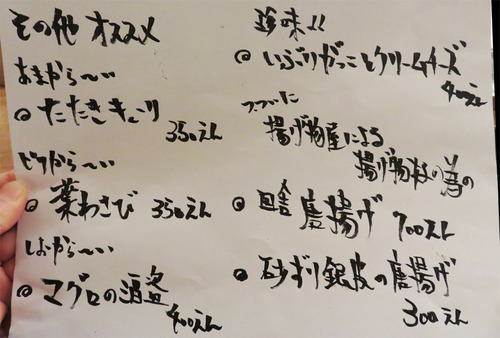 その他 オススメ
あまから〜い
◎ たたきキューリ
350えん
ピリから〜い
◎ 葉わさび 350えん
しおから〜い
◎ マグロの酒盗
400えん
珍味!!
◎ いぶりがっことクリームチーズ
400えん
揚げ物屋による
揚げ物の為の
◎ 田舎唐揚げ 700えん
◎ 砂ずり銀皮の唐揚げ
300えん